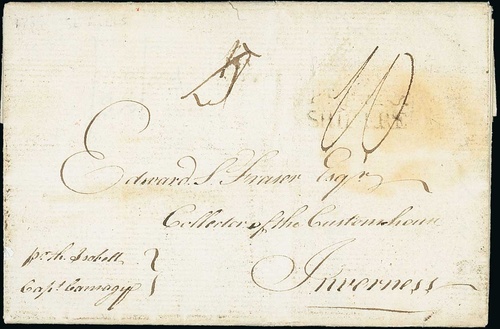 10
Edward S. Fraser Esqr
Collector of the Customhouse
Inverness
pr the Isobell
Capt